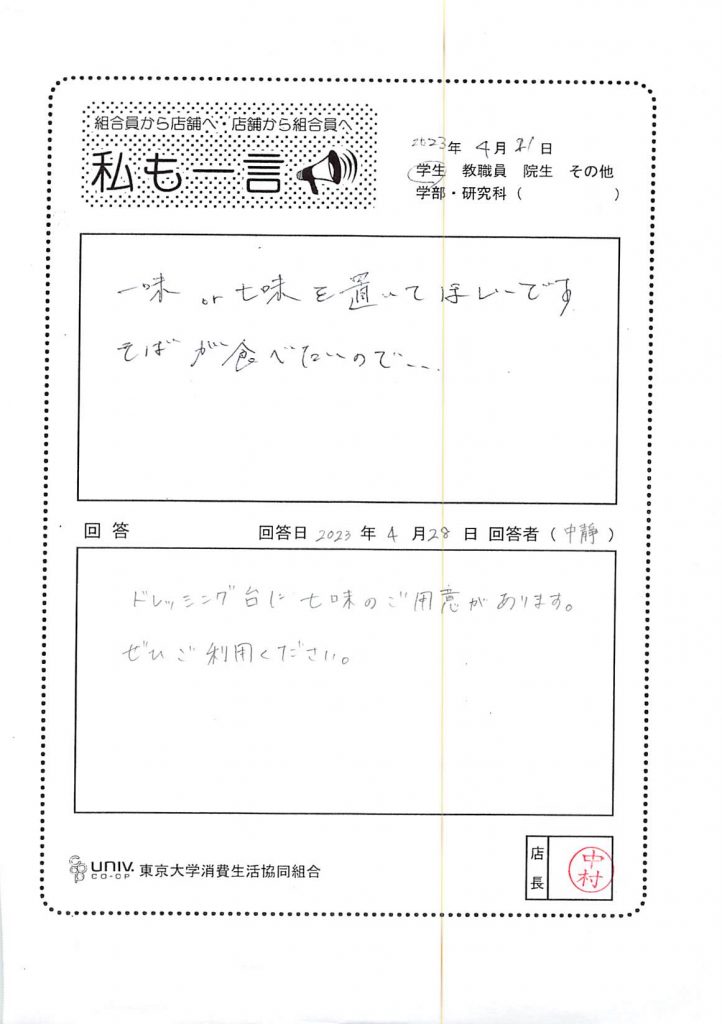 組合員から店舗へ・店舗から組合員へ
私も一言
2023年 4月 21日
学生 教職員 院生 その他
学部・研究科（ ）
一味 or 七味を置いてほしーです
そばが食べたいので...
回答 回答日 2023 年 4 月 28 日 回答者（中静）
ドレッシング台に七味のご用意があります。
ぜひご利用ください。
UNIV. CO-OP 東京大学消費生活協同組合
店長 中村